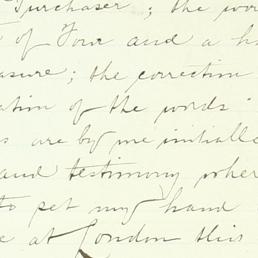 Purchaser; the wor
of Four and a ha
asure; the correction
ation of the words "
s are by me initialle
and testimony wher
to set my hand
e at London this